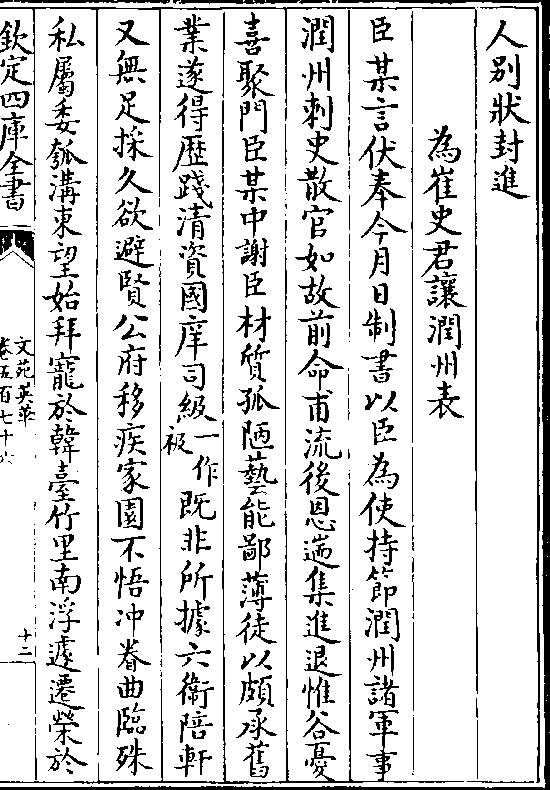 人别狀封進
為崔史君讓潤州表
臣某言伏奉今月日制書以臣為使持節潤州諸軍事
潤州刺史散官如故前命甫流後恩遄集進退惟谷憂
喜聚門臣某中謝臣材質孤陋藝能鄙薄徒以頗承舊
業遂得歴踐清資國庠司級一作被既非所據六衛陪軒
又無足採久欲避賢公府移疾家園不悟冲眷曲臨殊
私屬委瓠溝東望始拜寵於韓臺竹里南浮遽遷榮於
欽定四庫全書
文苑英華
卷五百七十六
十二